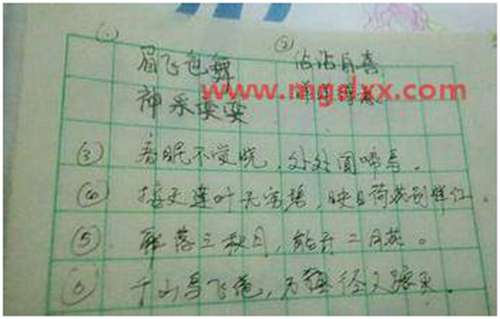 (1) (2)
眉飞色舞 沾沾自喜
神采奕奕
www.mgslxx.com
(3) 春眠不觉晓,处处闻啼鸟。
(4) 接天莲叶无穷碧,映日荷花别样红。
(5) 解落三秋月,能开二月花。
(6) 千山鸟飞绝,万径人踪灭。